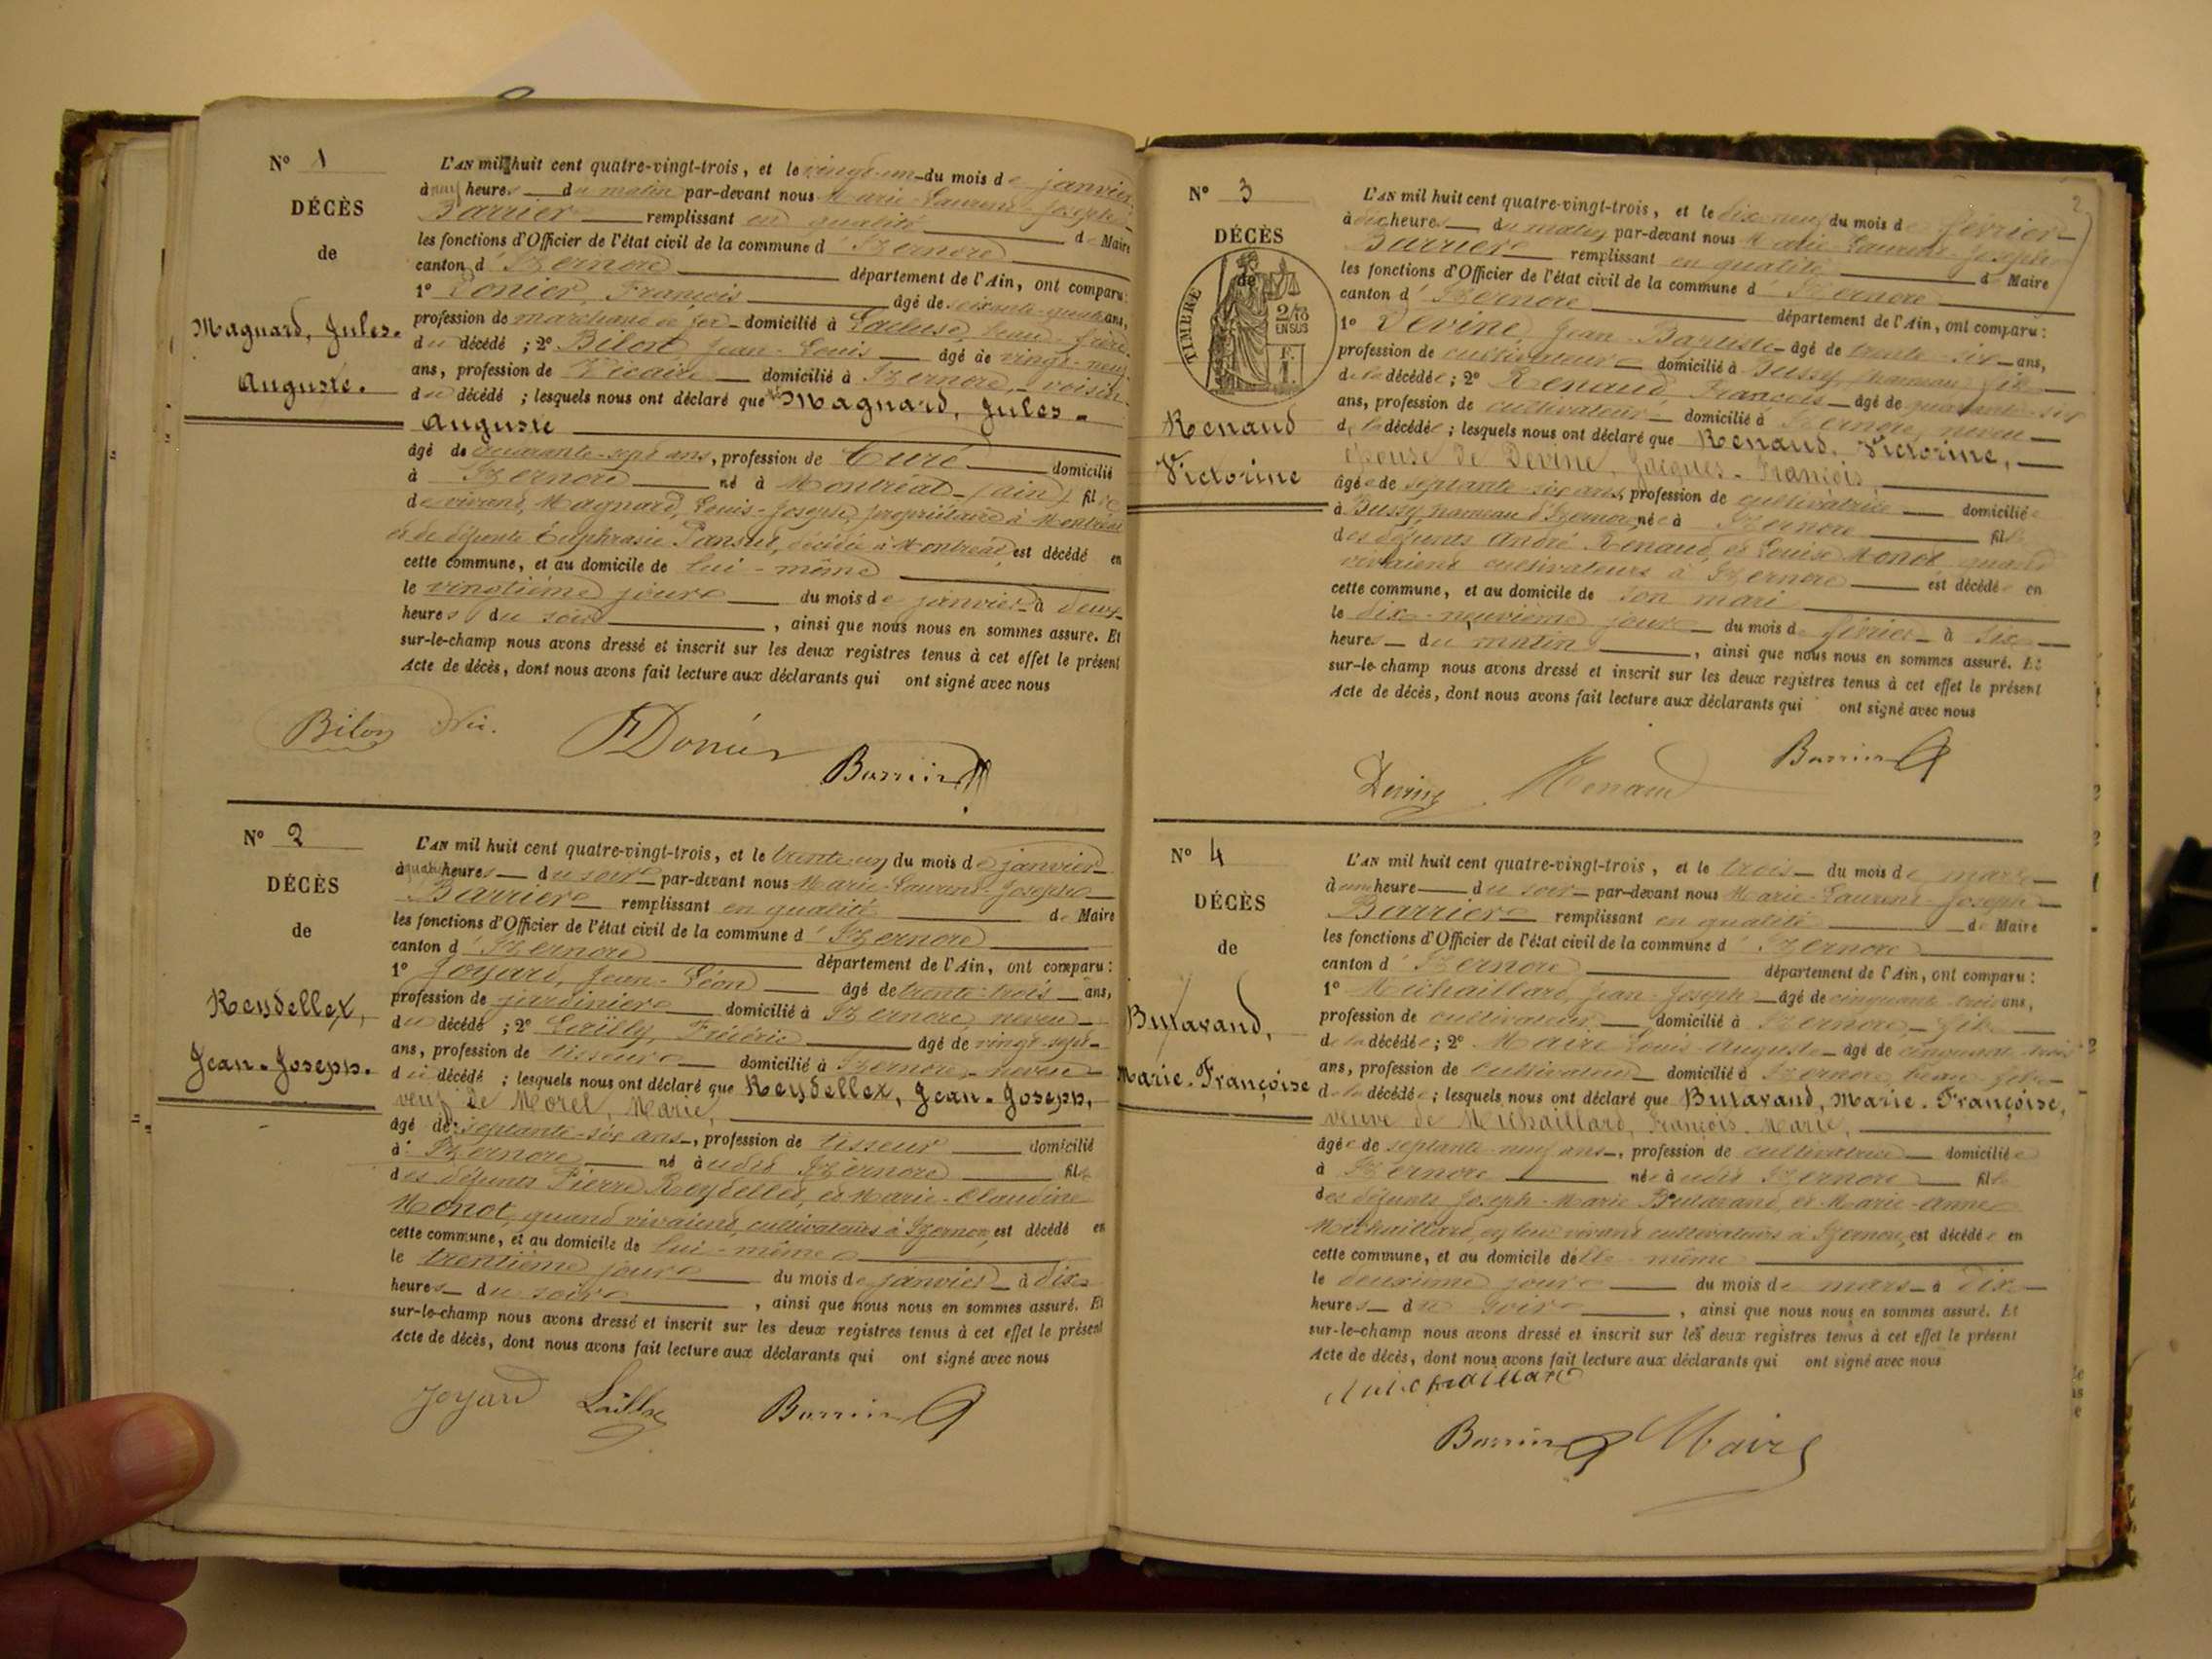 N° 1
DÉCÈS
de
Magnard, Jules-
Auguste.
L'AN mil huit cent quatre-vingt-trois, et le vingt-un du mois de janvier
à neuf heures du matin par-devant nous Marie-Laurent-Joseph
Barrier remplissant en qualité de Maire
les fonctions d'Officier de l'état civil de la commune d'Izernore
canton d'Izernore département de l'Ain, ont comparu:
1° Donier, François âgé de soixante- ans,
profession de marchand de fer domicilié à Lacluse, beau-frère
du décédé ; 2° Bilon Jean-Louis âgé de vingt-neuf
ans, profession de Vicaire domicilié à Izernore, voisin
du décédé ; lesquels nous ont déclaré que Magnard, Jules-
Auguste
âgé de quarante-sept ans, profession de Curé domicilié
à Izernore né à Montréal (ain) fils de
de vivant, Magnard, Louis-Joseph, propriétaire à Montréal
et de défunte Euphrasie Pansut, décédée à Montréal est décédé en
cette commune, et au domicile de lui-même
le vingtième jour du mois de janvier à deux
heures du soir, ainsi que nous nous en sommes assuré. Et
sur-le-champ nous avons dressé et inscrit sur les deux registres tenus à cet effet le présent
Acte de décès, dont nous avons fait lecture aux déclarants qui ont signé avec nous
Bilon Vic. F Donier Barrier
N° 2
DÉCÈS
de
Reydellet,
Jean-Joseph.
L'AN mil huit cent quatre-vingt-trois, et le trente-un du mois de janvier
à quatre heures du soir par-devant nous Marie-Laurent-Joseph
Barrier remplissant en qualité de Maire
les fonctions d'Officier de l'état civil de la commune d'Izernore
canton d'Izernore département de l'Ain, ont comparu:
1° Joyard, Jean-Léon âgé de trente-trois ans,
profession de jardinier domicilié à Izernore, neveu
du décédé ; 2° Frédéric âgé de vingt-sept
ans, profession de tisseur domicilié à Izernore, neveu
du décédé ; lesquels nous ont déclaré que Reydellet, Jean-Joseph,
veuf de Morel, Marie,
âgé de septante-six ans, profession de tisseur domicilié
à Izernore né audit Izernore fils
des défunts Pierre Reydellet, et Marie-Claudine
Monot, quand vivaient, cultivateurs à Izernore, est décédé en
cette commune, et au domicile de lui-même
le trentième jour du mois de janvier à dix
heures du soir, ainsi que nous nous en sommes assuré. Et
sur-le-champ nous avons dressé et inscrit sur les deux registres tenus à cet effet le présent
Acte de décès, dont nous avons fait lecture aux déclarants qui ont signé avec nous
Joyard Barrier
2
N° 3
DÉCÈS
de
TIMBRE
2/10
EN SUS
Renaud
Victorine
L'AN mil huit cent quatre-vingt-trois, et le dix-neuf du mois de février
à dix heures du matin par-devant nous Marie-Laurent-Joseph
Barrier remplissant en qualité de Maire
les fonctions d'Officier de l'état civil de la commune d'Izernore
canton d'Izernore département de l'Ain, ont comparu:
1° Devine Jean-Baptiste âgé de trente-six ans,
profession de cultivateur domicilié à Bussy, hameau fils
de la décédée ; 2° Renaud, François âgé de quarante-six
ans, profession de cultivateur domicilié à Izernore, neveu
de la décédée ; lesquels nous ont déclaré que Renaud, Victorine,
épouse de Devine, Jacques-François,
âgée de septante-six ans, profession de cultivatrice domiciliée
à Bussy hameau d'Izernore, née à Izernore fille
des défunts André Renaud, et Louise Monot quand
vivaient cultivateurs à Izernore est décédée en
cette commune, et au domicile de son mari
le dix-neuvième jour du mois de février à six
heures du matin, ainsi que nous nous en sommes assuré. Et
sur-le-champ nous avons dressé et inscrit sur les deux registres tenus à cet effet le présent
Acte de décès, dont nous avons fait lecture aux déclarants qui ont signé avec nous
Devine Renaud Barrier
N° 4
DÉCÈS
de
Butavand,
Marie-Françoise
L'AN mil huit cent quatre-vingt-trois, et le trois du mois de mars
à une heure du soir par-devant nous Marie-Laurent-Joseph
Barrier remplissant en qualité de Maire
les fonctions d'Officier de l'état civil de la commune d'Izernore
canton d'Izernore département de l'Ain, ont comparu:
1° Michaillard, Jean-Joseph âgé de cinquante-trois ans,
profession de cultivateur domicilié à Izernore, fils
de la décédée ; 2° Maire Louis-Auguste âgé de cinquante-trois
ans, profession de cultivateur domicilié à Izernore, beau-fils
de la décédée ; lesquels nous ont déclaré que Butavand, Marie-Françoise,
veuve de Michaillard, François-Marie,
âgée de septante-neuf ans, profession de cultivatrice domiciliée
à Izernore née audit Izernore fille
des défunts Joseph-Marie Butavand, et Marie-Anne
Michaillard, en leur vivant cultivateurs à Izernore, est décédée en
cette commune, et au domicile d'elle-même
le deuxième jour du mois de mars à dix
heures du soir, ainsi que nous nous en sommes assuré. Et
sur-le-champ nous avons dressé et inscrit sur les deux registres tenus à cet effet le présent
Acte de décès, dont nous avons fait lecture aux déclarants qui ont signé avec nous
Michaillard
Barrier Maire